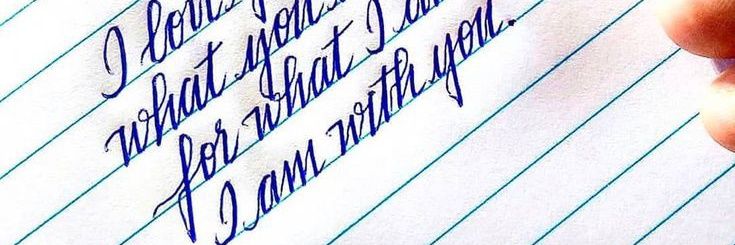 I love
what you
for what I
I am with you.